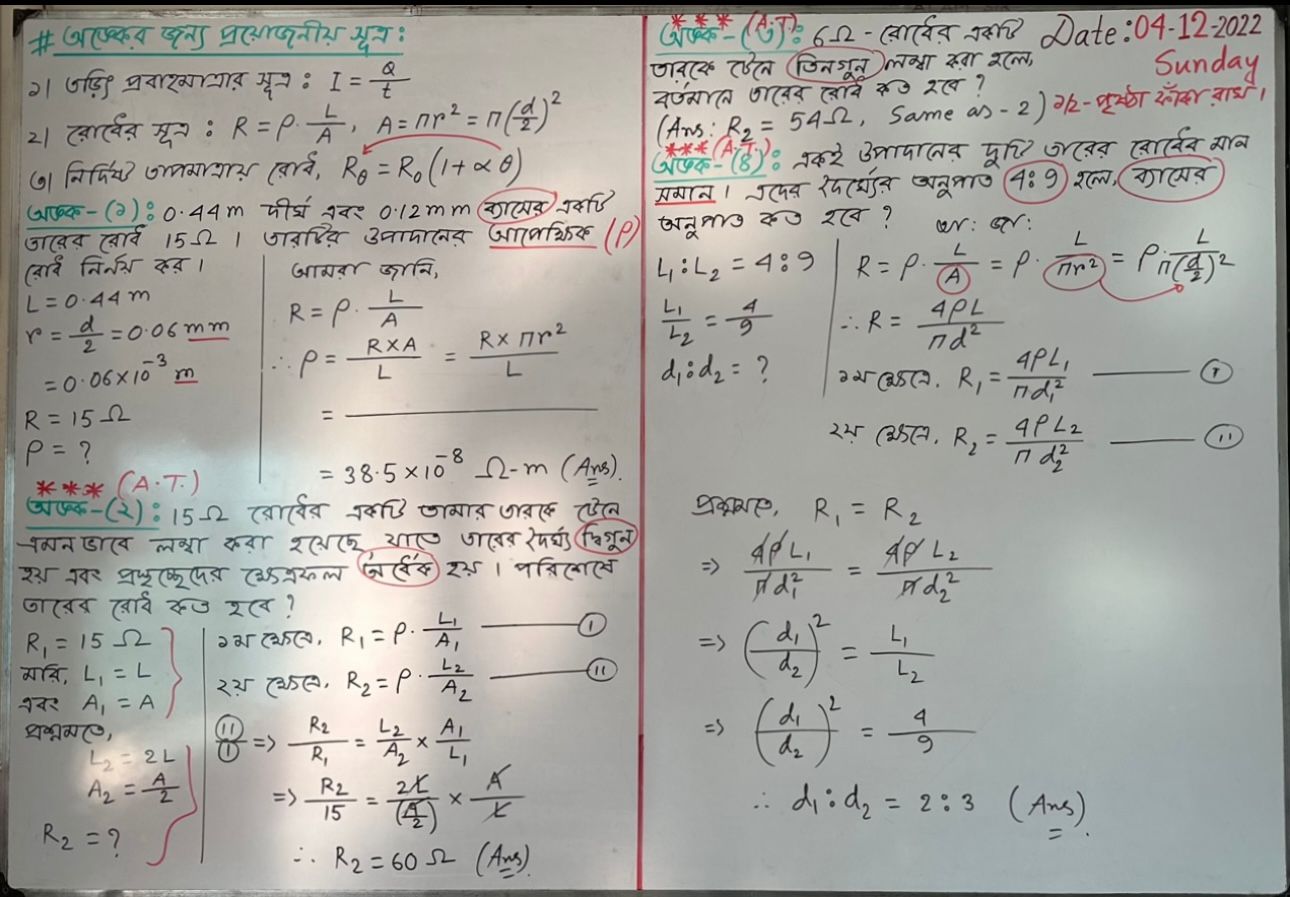 # অংকের জন্য প্রয়োজনীয় সূত্র :
১। তড়িৎ প্রবাহমাত্রার সূত্র : I = Q/t
২। রোধের সূত্র : R = ρ · L/A, A = πr² = π(d/2)²
৩। নির্দিষ্ট তাপমাত্রায় রোধ, R_θ = R₀(1+αθ)
অংক-(১) : 0.44m দীর্ঘ এবং 0.12mm ব্যাসের একটি
তারের রোধ 15Ω । তারটির উপাদানের আপেক্ষিক (ρ)
রোধ নির্ণয় কর ।
L = 0.44 m
r = d/2 = 0.06 mm
= 0.06×10⁻³ m
R = 15 Ω
ρ = ?
আমরা জানি,
R = ρ · L/A
∴ ρ = R×A/L = R×πr²/L
=
= 38.5×10⁻⁸ Ω-m (Ans).
*** (A.T.)
অংক-(২) : 15Ω রোধের একটি তামার তারকে টেনে
এমনভাবে লম্বা করা হয়েছে যাতে তারের দৈর্ঘ্য দ্বিগুন
হয় এবং প্রস্থচ্ছেদের ক্ষেত্রফল অর্ধেক হয় । পরিশেষে
তারের রোধ কত হবে ?
R₁ = 15 Ω
ধরি, L₁ = L
এবং A₁ = A
প্রশ্নমতে,
L₂ = 2L
A₂ = A/2
R₂ = ?
১ম ক্ষেত্রে, R₁ = ρ · L₁/A₁ —— (i)
২য় ক্ষেত্রে, R₂ = ρ · L₂/A₂ —— (ii)
(ii)/(i) => R₂/R₁ = L₂/A₂ × A₁/L₁
=> R₂/15 = 2L/(A/2) × A/L
∴ R₂ = 60 Ω (Ans).
*** (A.T.)
Date : 04-12-2022
Sunday
অংক-(৩) : 6Ω - রোধের একটি
তারকে টেনে তিনগুন লম্বা করা হলে,
বর্তমানে তারের রোধ কত হবে ?
(Ans: R₂ = 54Ω, Same as - 2) ১/২-পৃষ্ঠা ফাঁকা রাখ ।
*** (A.T.)
অংক-(৪) : একই উপাদানের দুটি তারের রোধের মান
সমান । এদের দৈর্ঘ্যের অনুপাত 4:9 হলে, ব্যাসের
অনুপাত কত হবে ?
L₁ : L₂ = 4 : 9
L₁/L₂ = 4/9
d₁ : d₂ = ?
আ: জা:
R = ρ · L/A = ρ · L/πr² = ρ · L/π(d/2)²
∴ R = 4ρL/πd²
১ম ক্ষেত্রে, R₁ = 4ρL₁/πd₁² —— (i)
২য় ক্ষেত্রে, R₂ = 4ρL₂/πd₂² —— (ii)
প্রশ্নমতে, R₁ = R₂
=> 4ρL₁/πd₁² = 4ρL₂/πd₂²
=> (d₁/d₂)² = L₁/L₂
=> (d₁/d₂)² = 4/9
∴ d₁ : d₂ = 2 : 3 (Ans).